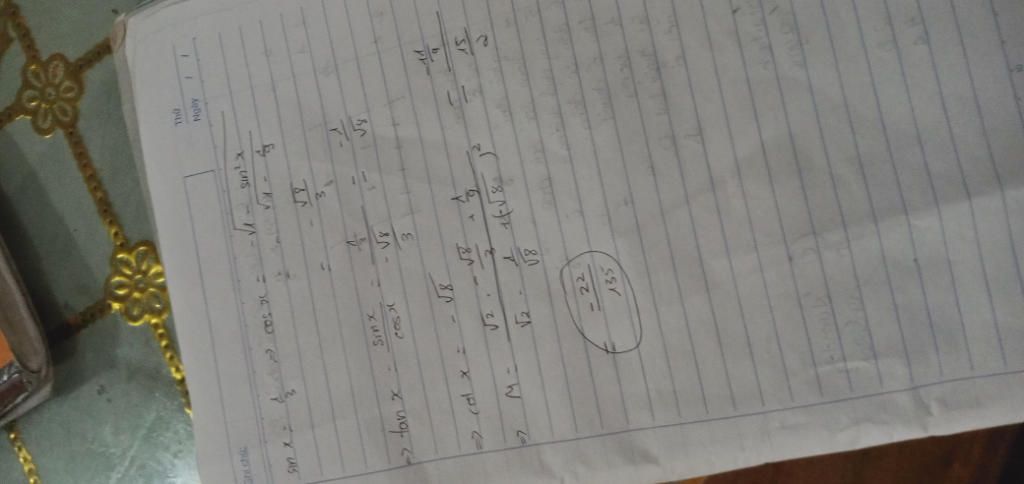 Thứ
Ngày
sin x = 1/3 => cos x = -√(1 - sin²x)
= -√(1 - 1/9)
= -√8/3
=> tan x = sin x / cos x = (1/3) / (-√8/3) = -1/√8
=> cot x = -√8
=> M = (√2 . -√8/3 + 1/9) / (√2 . -1/√8 + (-√8)²) = (-11/9) / (15/2)
= -22/135